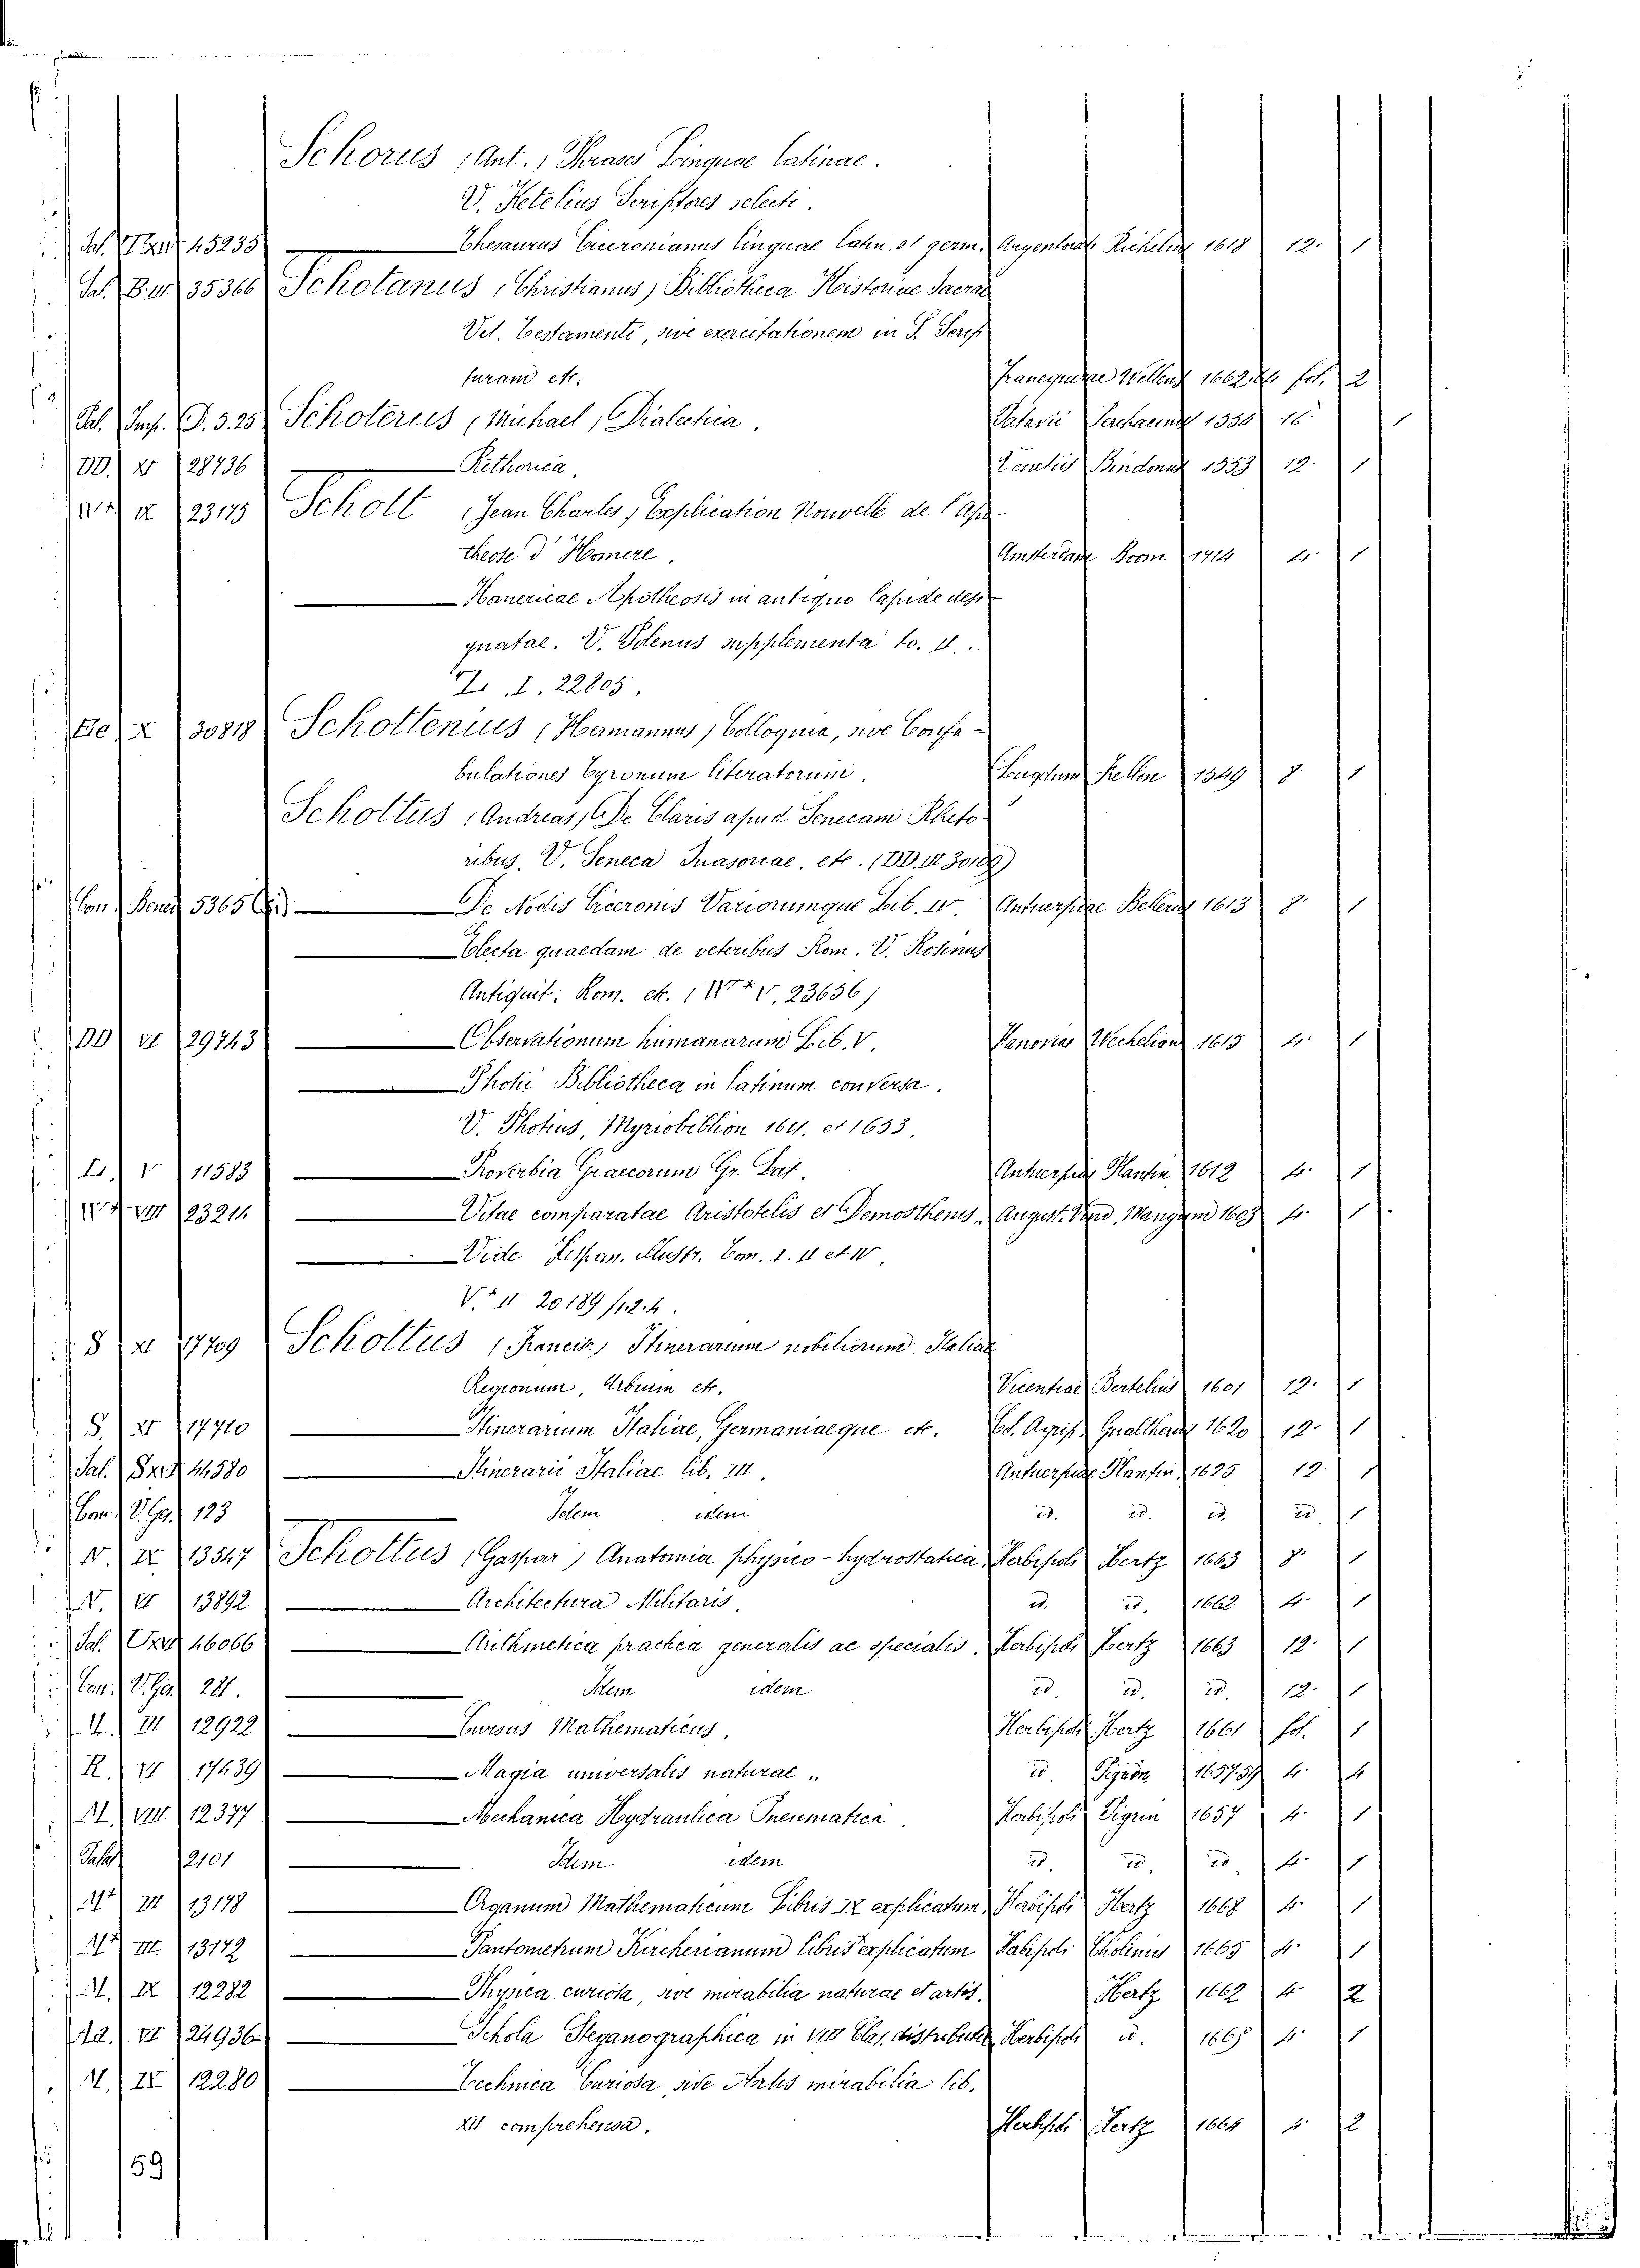 Schorus (Ant.) Phrases Linguae latinae.
V. Ketelius Scriptores selecti.
Sal. 45235 Thesaurus Ciceronianus linguae latin. et germ. Argentorat Richelius 1618 12. 1
Sal. 35366 Schotanus (Christianus) Bibliotheca Historiae Sacrae
Vet. Testamenti, sive exercitationem in S. Scrip
turam etc. Franequerae 1662 fol. 2
Sal. Imp. 5.25 Schoterus (Michael) Dialectica. 16. 1
DD. 28736 Rethorica. Bindonus 1553 12. 1
23175 Schott (Jean Charles) Explication Nouvelle de l'Apo-
theose d'Homere. Amsterdam Boom 1714 4. 1
Homericae Apotheosis in antiquo lapide desi
gnatae. V. Polenus supplementa to. II.
I. 22805.
30818 Schottenius (Hermannus) Colloquia, sive Confa-
bulationes Tyronum literatorum. Lugdun 1549 8 1
Schottus (Andreas) De Claris apud Senecam Rheto
ribus. V. Seneca Suasoriae, etc.
5365 De Nodis Ciceronis Variorumque Lib. IV. Antuerpiae Bellerus 1613 8. 1
Electa quaedam de veteribus Rom. V. Rosinus
Antiquit: Rom. etc. 23656)
DD VI 29743 Observationum humanarum Lib. V. Hanoviae Wechelian 1615 4. 1
Photii Bibliotheca in latinum conversa.
V. Photius, Myriobiblion 1611. et 1653.
V 11583 Proverbia Graecorum Gr. Lat. Antuerpiae Plantin 1612 4. 1
VIII 23214 Vitae comparatae Aristotelis et Demosthenis. August. Vind. Mangum 1603 4. 1
Vide Hispan. Illustr. Tom. I. II et IV.
20189/12.4.
S XI 17709 Schottus (Francis.) Itinerarum nobiliorum Italiae
Regionum, Urbium etc. Vicentiae Bertelius 1601 12. 1
S. XI 17710 Itinerarium Italiae, Germaniaeque etc. Col. Agrip. Gualtherus 1620 12. 1
Sal. 44580 Itinerarii Italiae lib. III. Antuerpiae Plantin. 1625 12. 1
123 Idem idem id. id. id. id. 1
N. IX 13547 Schottus (Gaspar) Anatomia physico-hydrostatica Herbipoli Hertz 1663 8. 1
N. VI 13892 Architectura Militaris. id. id. 1662 4. 1
Sal. 46066 Arithmetica practica generalis ac specialis. Herbipoli Hertz 1663 12. 1
281. Idem idem id. id. id. 12. 1
III 12922 Cursus Mathematicus. Herbipoli Hertz 1661 fol. 1
R. VI 17439 Magia universalis natural.. id. Pigrin 1657.59 4. 4
M. VIII 12377 Mechanica Hydraulica Pneumatica. Herbipoli Pigrin 1657 4. 1
2101 Idem idem id. id. id. 4. 1
III 13178 Organum Mathematicum Libris IX explicatum. Herbipoli Hertz 1668 4. 1
III. 13179 Pantometrum Kircherianum libris explicatum Cholinus 1665 4. 1
M. IX 12282 Physica curiosa, sive mirabilia naturae et artis. Hertz 1662 4. 2
VI 24936 Schola Steganographica in VIII Clas. distributa Herbipoli id. 1665 4. 1
M. IX 12280 Technica Curiosa, sive Artis mirabilia lib.
XII comprehensa. Herbipoli Hertz 1664 4. 2
59